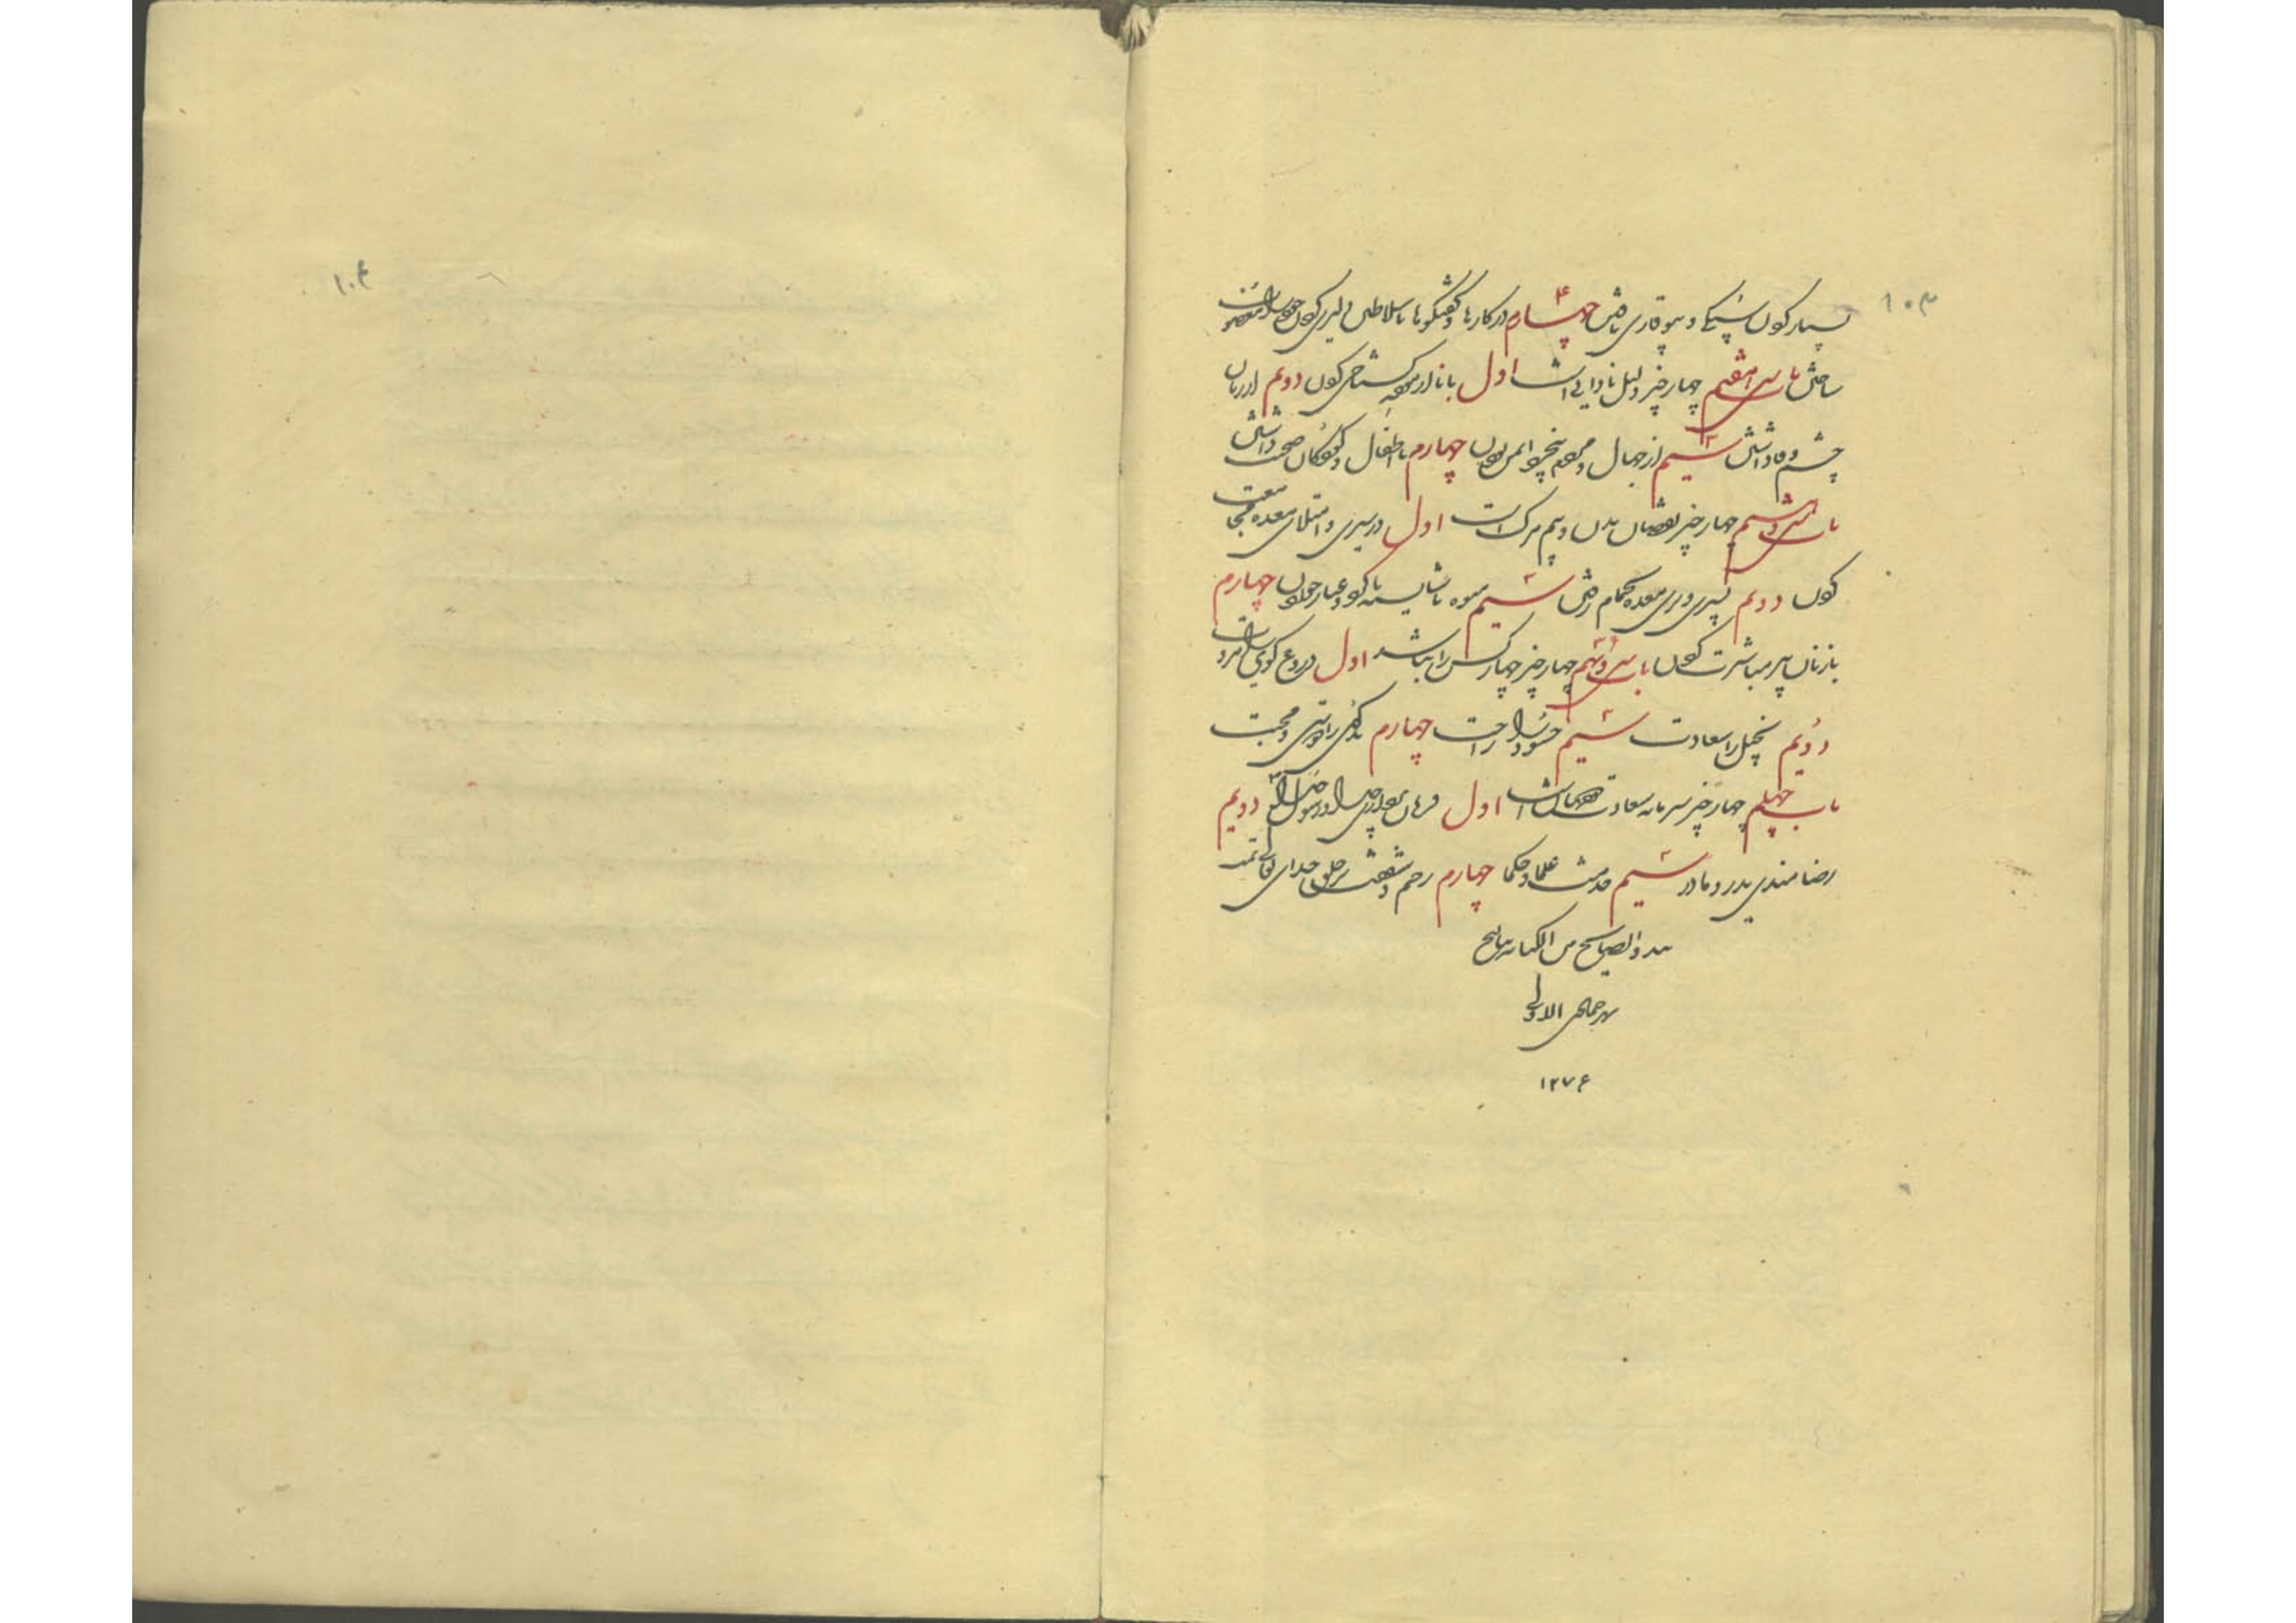 ۱۰۳
بسیار کردن سبکی و بیوقاری یافتن چهارم در کارها و گفتگوها با سلاطین دلیری کردن خود را
ساختن باب سی و هفتم چهار چیز دلیل نادانی است اول با نادان گستاخی کردن دویم از زنان
چشم وفا داشتن سیم از جهال و مردم ایمن بودن چهارم با اطفال و کودکان صحبت داشتن
باب سی و هشتم چهار چیز نقصان بدن و بیم مرک است اول در سیری و امتلای معده مجامعت
کردن دویم پیری معده بحمام رفتن سیم میوه ناشایسته خوردن چهارم
با زنان پیر مباشرت کردن باب سی و نهم چهار چیز چهار کس را نباشد اول دروغ گوی را مروت
دویم بخیل را سعادت سیم حسود را راحت چهارم را و محبت
باب چهلم چهار چیز سرمایه سعادت است اول فرمان خدا و رسول دویم
رضامندی پدر و مادر سیم خدمت علما و حکما چهارم رحم و شفقت بر خلق خدای تعالی تمت
جمادی الاولی
۱۲۷۶
۱۰۴